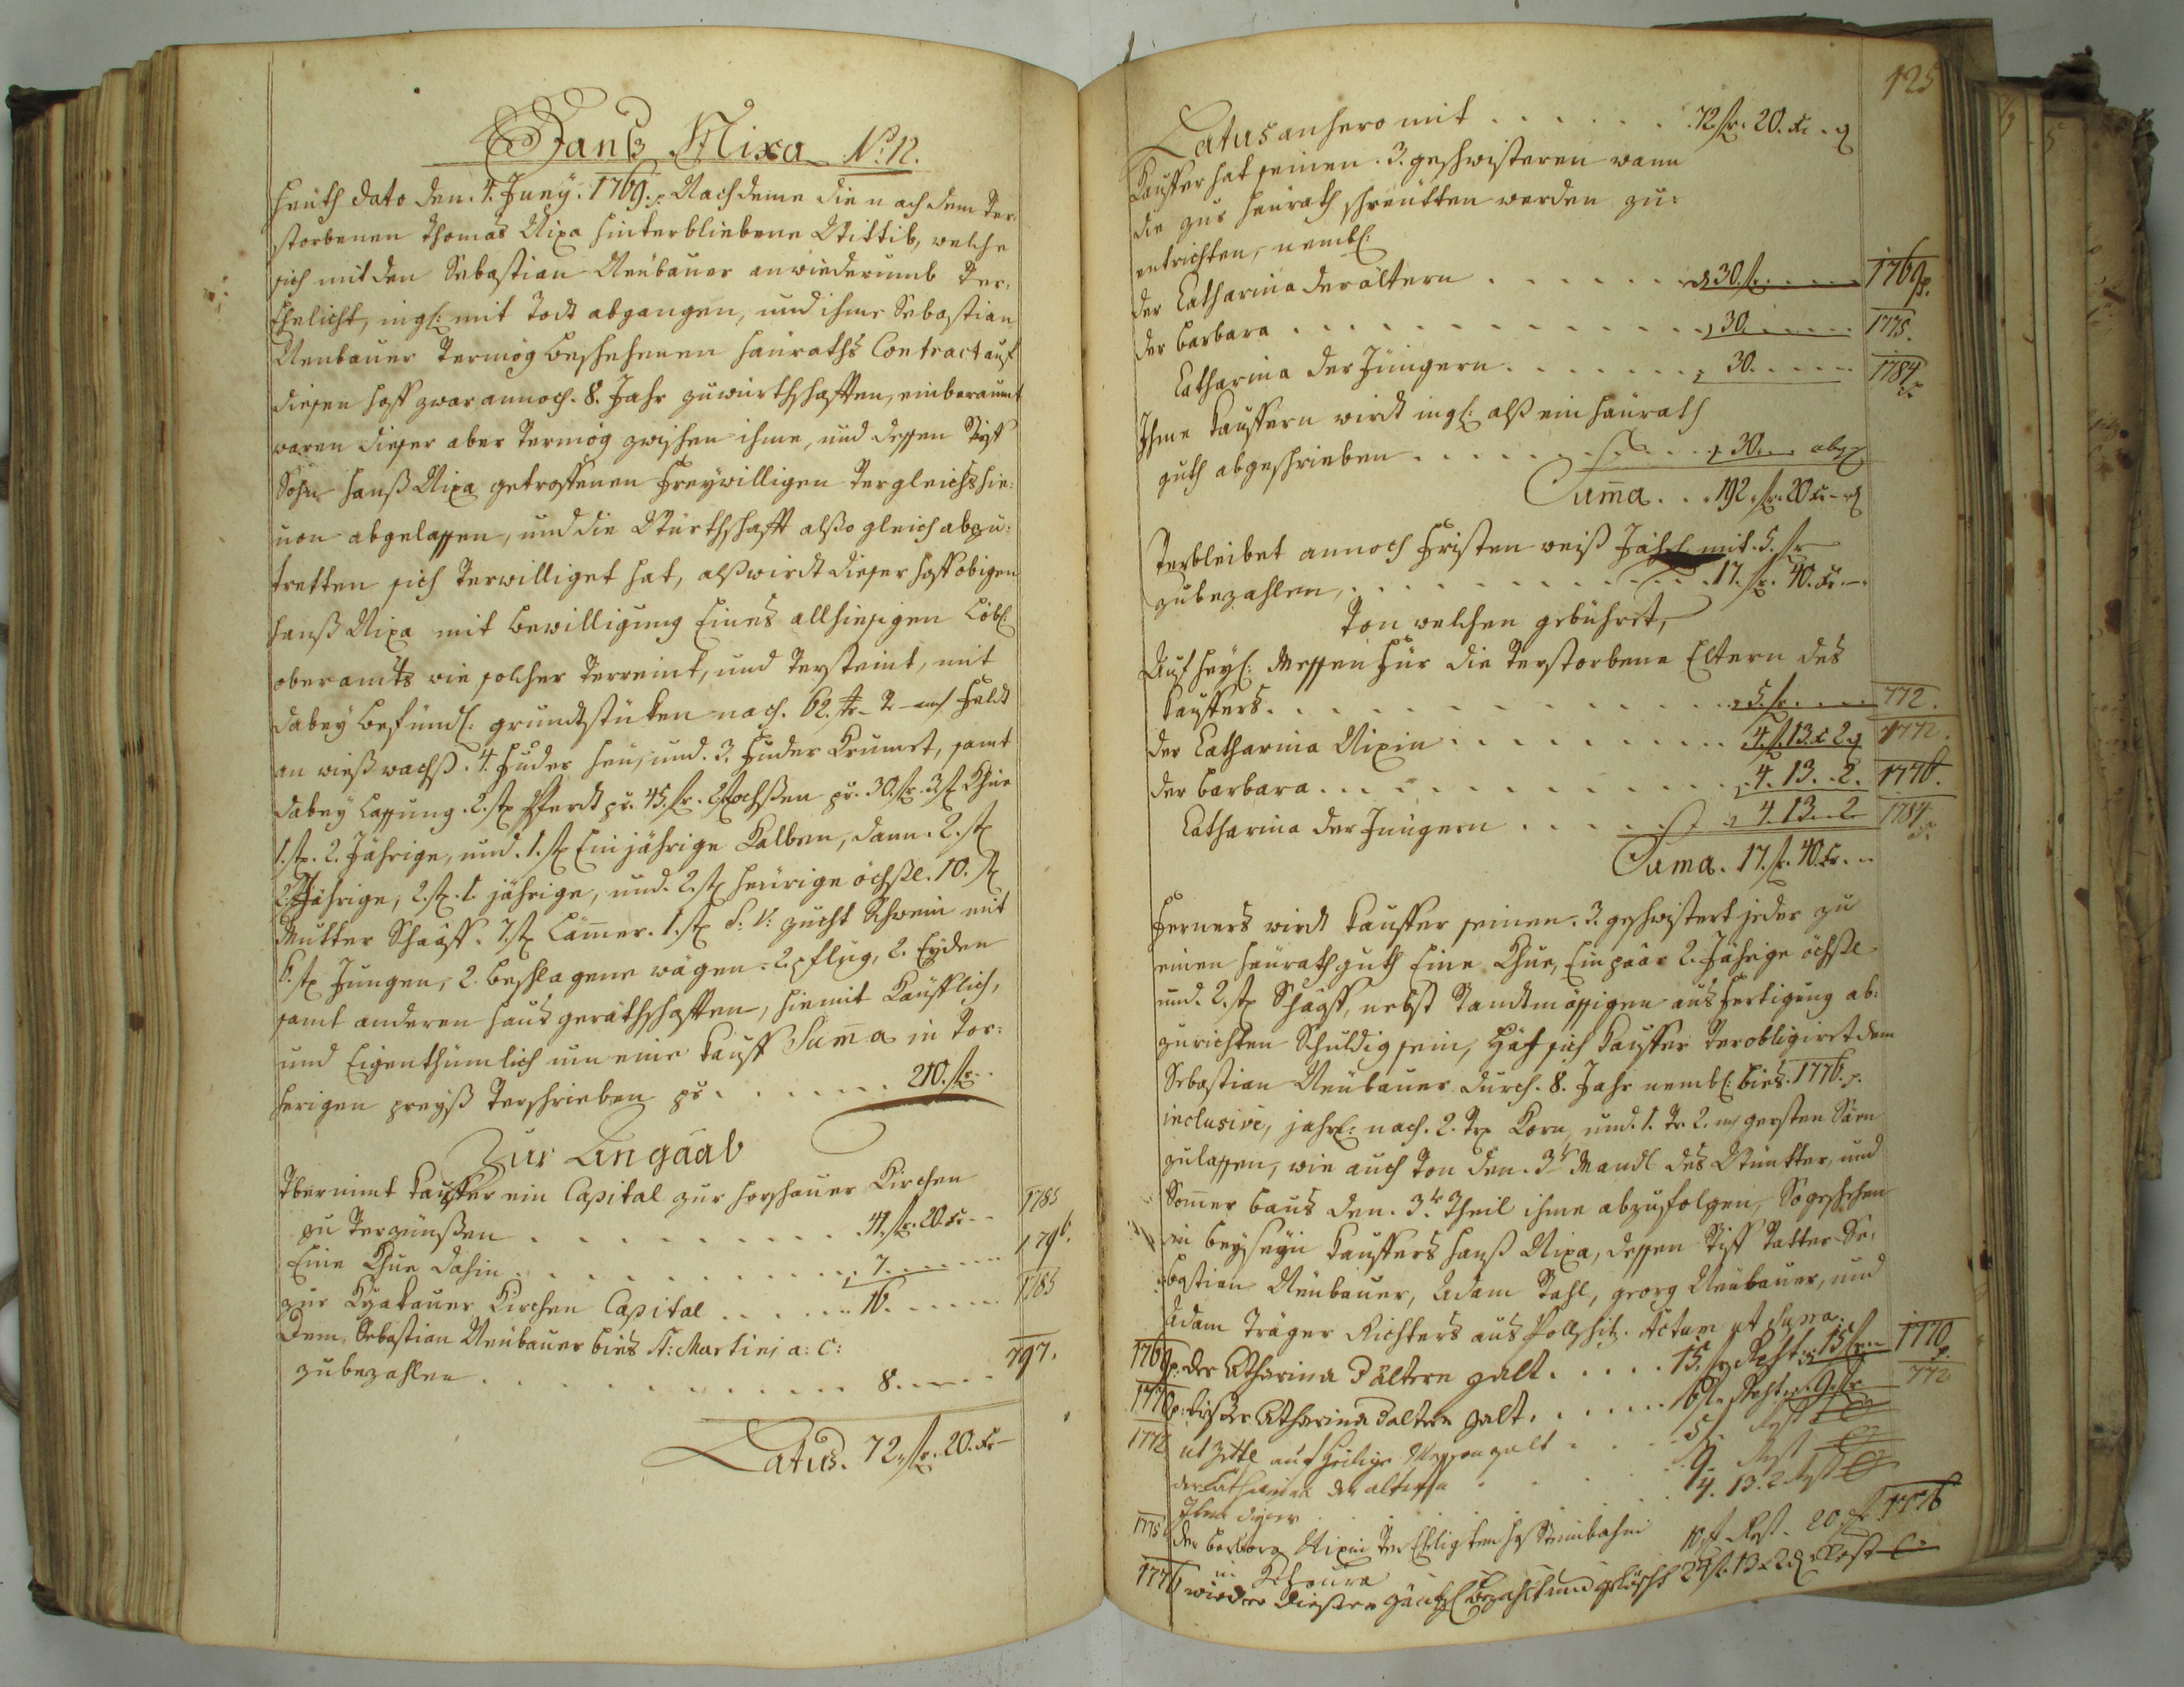 Hanß Nixa No: 12.
Heüth dato den. 4. Juny. 1769. Nachdeme die nach dem Ver-
storbenen Thomas Nixa hinterbliebene Wittib, welche
sich mit den Sebastian Neübauer anwiederumb Ver-
Ehelicht, ingl: mit Todt abgangen, und ihme Sebastian
Neubauer Vermög beschehenen Haüraths Contract auf
diesen Hoff zwar annoch. 8. Jahr zuwürthschafften, einberaumt
waren dieser aber Vermög zwischen ihme, und dessen Stief
Sohn Hanß Nixa getroffenen Freywilligen Vergleichs hie-
von abgelassen, und die Würthschafft alßo gleich abzu-
tretten sich Verwilliget hat, alß wirdt dieser Hoff obigen
Hanß Nixa mit Bewilligung Eines allhiesigen Löbl:
oberamts wie solcher Verreint, und Versteint, mit
dabey befündl: grundtstüken nach. 62. Feldt
an wießwachß. 4. Fuder Heü, und. 3. Fuder Krumet, samt
dabey Lassung. 2. st Pferdt pr. 45. fr. 2 st ochßen pr. 30. fr. 3 st Khüe
1. st. 2. Jährige, und. 1. st Einjährige Kalben, dann. 2. st
2. Jährige, 2. st. 1. jährige, und. 2. st heürige öchßl. 10. st
Mutter Schaaff. 7. st Lämer. 1. st S: V: zucht Schwein mit
6. st Jungen, 2. beschlagene wägen. 2. pflüg, 2. Eyden
samt anderen Haus geräthschafften, hiemit Kaüfflich,
und Eigenthümlich um eine Kauff Suma in Vor-
herigen preyß Verschrieben pr . . . . . . 210. fr.
Zur Angaab
Übernimt Kauffer ein Capital zur Horschauer Kirchen
zu Verzünßen . . . . . . . . . 41. fr. 20. Xr 1785
Eine Khue dahin . . . . . . . . . 7. 1796.
zur Kyakauer Kirchen Capital . . . . . 16. 1785
Dem Sebastian Neübauer bies St: Martini a: c:
zubezahlen . . . . . . . . . . . 8. 797.
Latus. 72. fr. 20. Xr
125
Latus anhero mit . . . . . . . 72. fr. 20. Xr. d
Kauffer hat seinen. 3. geschwisteren wann
die zur Heürath schreütten werden zu-
entrichten, nembl:
der Catharina der ältern . . . . . . . 30. fr. 1769.
der Barbara . . . . . . . . . . . . . 30. 1775.
Catharina der Jüngern . . . . . . . 30. 1784
Ihme Kauffern wirdt ingl: alß ein Haürath
guth abgeschrieben . . . . . . . . . 30. ab
Suma. . . 192. fr. 20 Xr. d
Verbleibet annoch Fristen weiß Jährl. mit. 5. fr
zubezahlen, . . . . . . . . . . . . 17. fr. 40. Xr.
Von welchen gebühret,
Auf Heyl: Messen Für die Verstorbene Eltern des
Kauffers. . . . . . . . . . . . . . 5. fr. 772.
der Catharina Nixin . . . . . . . . . 4. fr. 13. x 2 d 1772.
der Barbara . . . . . . . . . . . . . 4. 13. 2. 1776.
Catharina der Jüngern . . . . . . . . 4. 13. 2 1784
Suma. 17. fr. 40. Xr.
Ferners wirdt Kauffer seinen. 3. geschwistert jeder zu
einen Heürathguth Eine Khue, Ein paar 2. Jährige öchßl
und. 2. st Schaaff, nebst Standtmässigen ausfertigung ab-
zurichten Schuldig sein, Hat sich Kauffer Verobligiret dem
Sebastian Neübauer durch. 8. Jahr nembl: bies. 1776.
inclusive, jährl: nach. 2. Korn, und. 1. 2. gersten Säen
zulassen, wie auch Von den. 3t Mandl des Wüntter, und
Somer baus den. 3t Theil ihme abzufolgen, So geschehen
in beyseyn Kauffers Hanß Nixa, dessen Stiff Vatter Se-
bastian Neübauer, Adam Stahl, georg Neübauer, und
Adam Träger Richters aus Pollschitz. Actum ut Supra.
1769 der Catharina d ältern galt. . . . . 15. fr Rest 15 fr 1770
1770 dieser Catharina d altern galt. . . . . . . 6 fl. Rest 9 fr 772
1772 ut Zettl auf Heilige Messen galt . . . 5 fl Rest
der Catharina der alteren . . . . 9. Rest
4. 13. 2 Rest
1775 der Barbara Nixin Verehligten Steinbachin 10 fl Rest. 20 fl 1776
in
1776 wieder dießer gäntzl bezahlt und gelöscht 24 fl. 13 x 2 d Rest